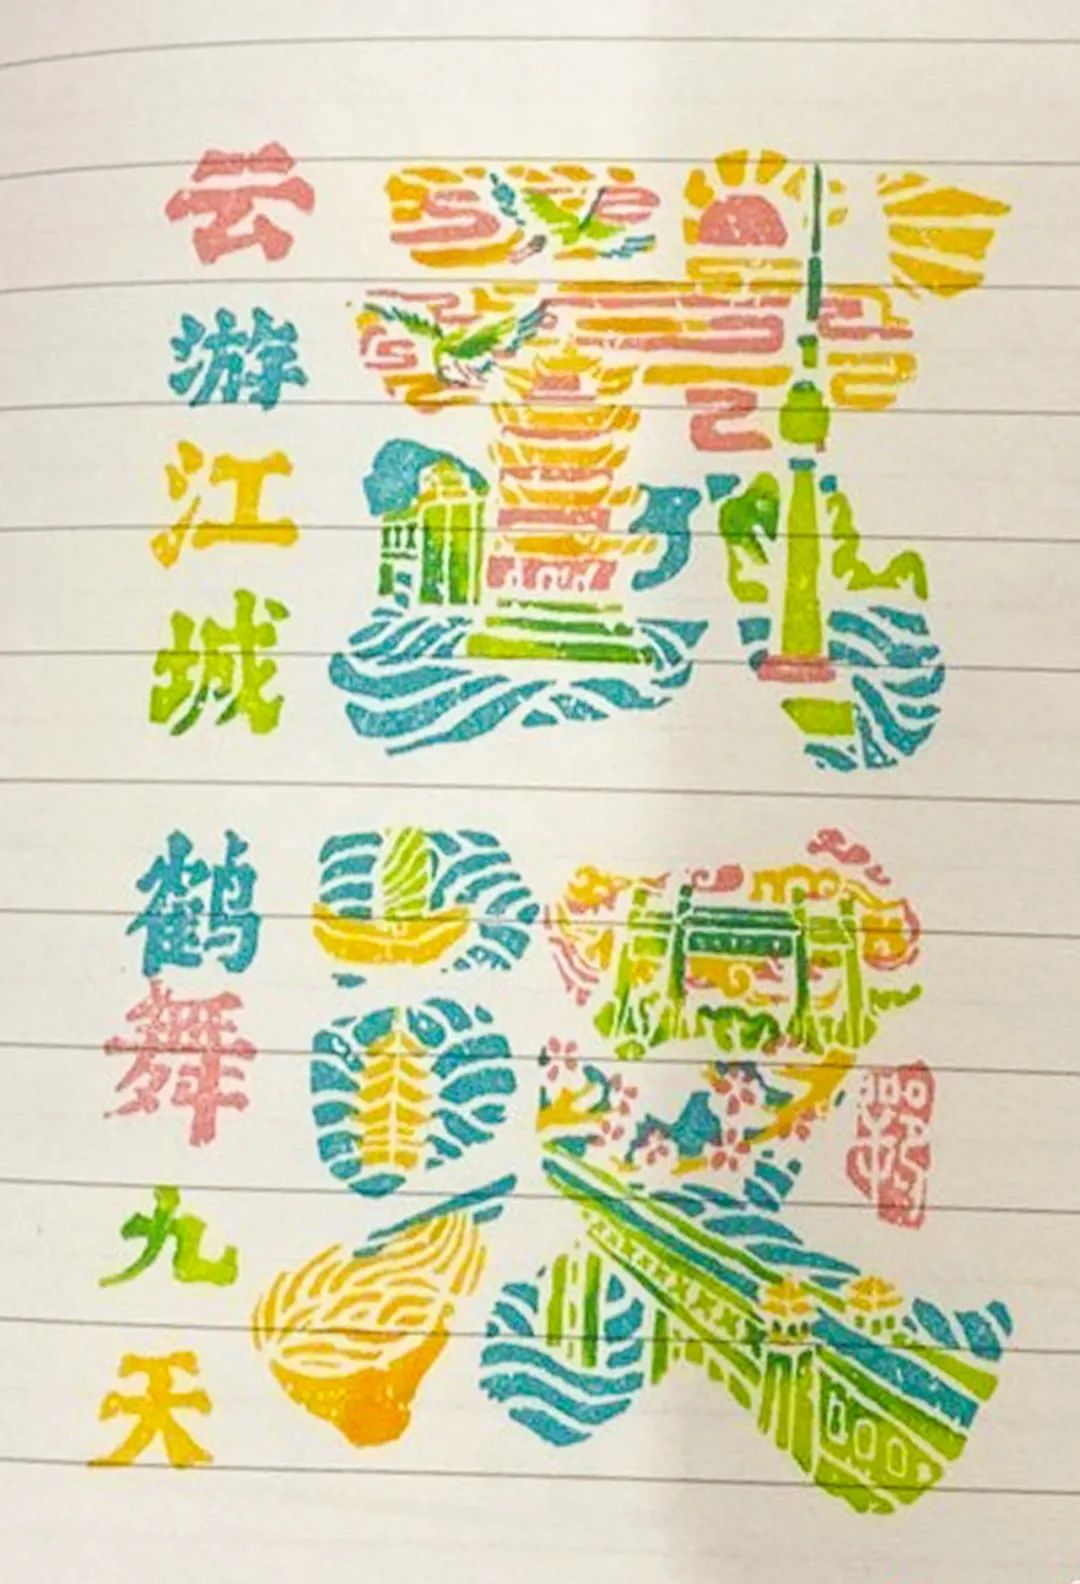 云游江城
鹤舞九天
武汉